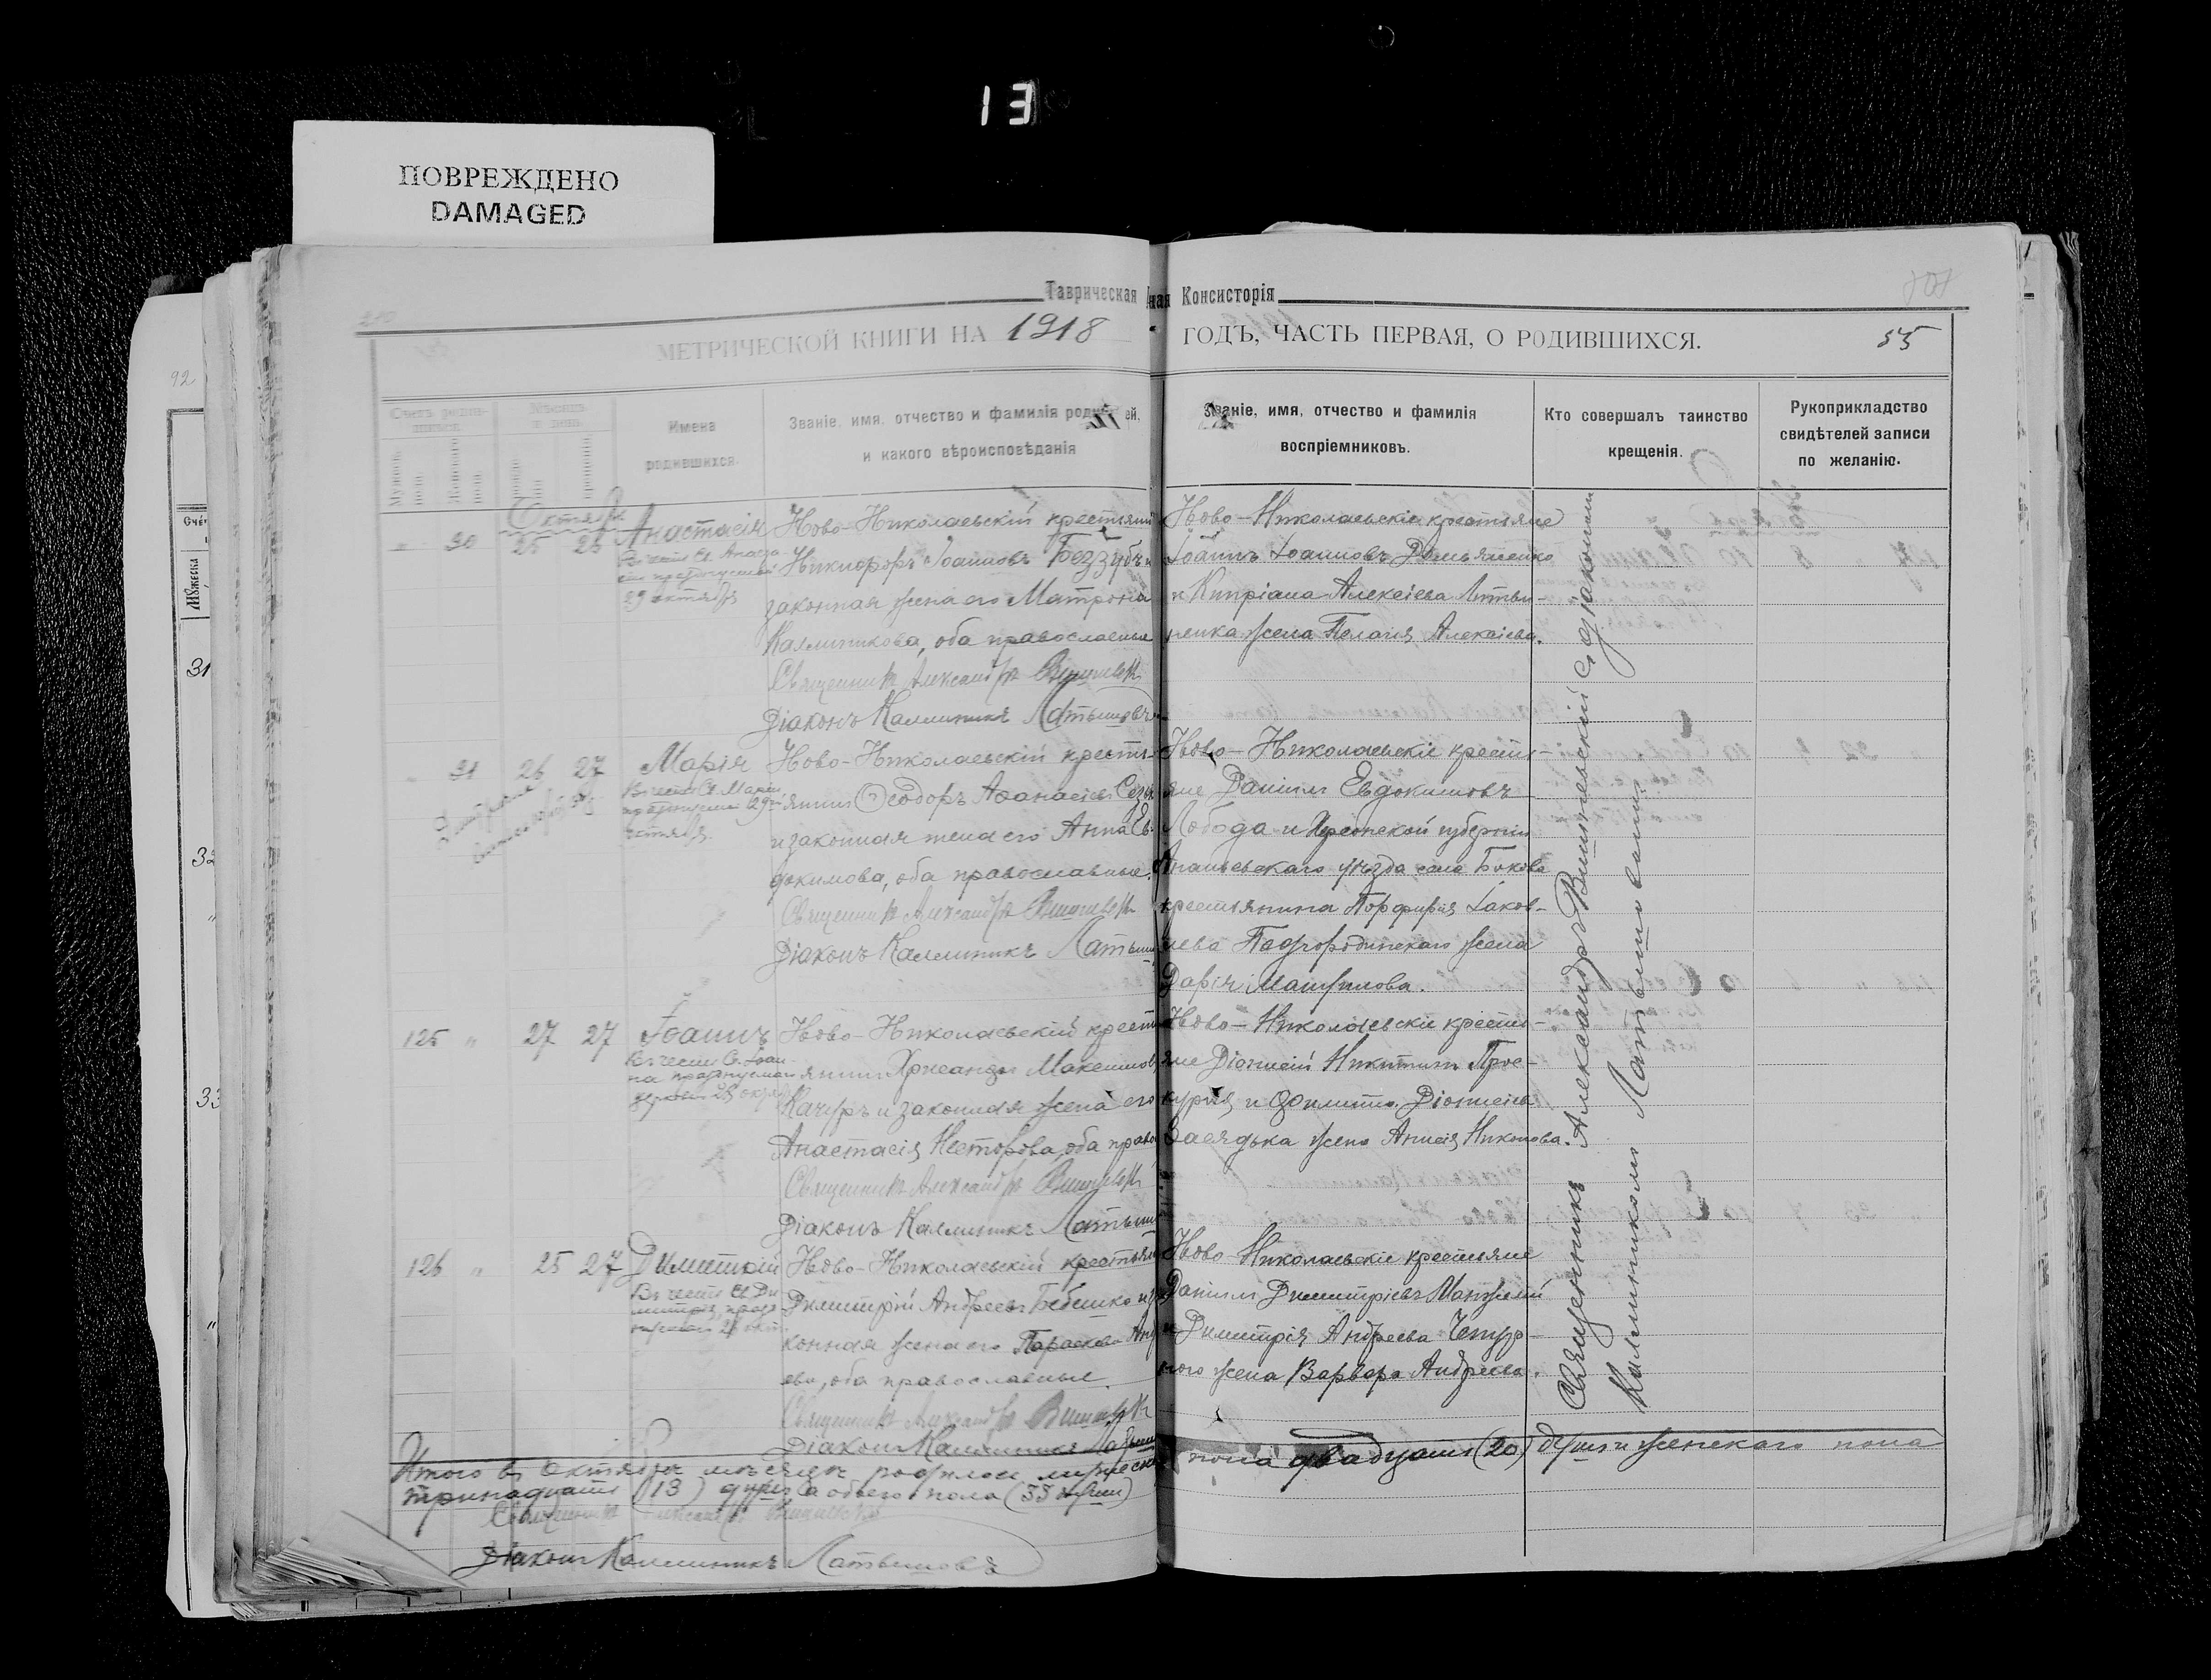 13
ПОВРЕЖДЕНО
DAMAGED
Таврическая ная Консисторія
МЕТРИЧЕСКОЙ КНИГИ НА 1918 ГОДЪ, ЧАСТЬ ПЕРВАЯ, О РОДИВШИХСЯ.
55
92
Счетъ родив-
шихся
Мужеска пола
Женска пола
Мѣсяцъ
и день
рожденія
крещенія
Имена
родившихся.
Званіе, имя, отчество и фамилія родителей,
и какого вѣроисповѣданія
Званіе, имя, отчество и фамилія
воспріемниковъ.
Кто совершалъ таинство
крещенія.
Рукоприкладство
свидѣтелей записи
по желанію.
Октябрь
" 30 25 26 Анастасія
Въ честь Св. Анаста-
сіи празднуемой
29 октября
Ново-Николаевскій крестьянинъ
Никифоръ Іоанновъ Беззубъ и
законная жена его Матрона
Каллиникова, оба православные
Священникъ Александръ Вишневскій
Діаконъ Каллиникъ Латышовъ
Ново-Николаевскіе крестьяне
Іоаннъ Іоанновъ Демьяненко
и Кипріана Алексіева Литви-
ненка жена Пелагія Алексіева.
" 31 26 27 Марія
Въ честь Св. Маріи
празднуемой 29
октября.
Ново-Николаевскій кресть-
янинъ Ѳеодоръ Аѳанасіевъ
и законная жена его Анна Ев-
докимова, оба православные.
Священникъ Александръ Вишневскій
Діаконъ Каллиникъ Латышовъ
Ново-Николаевскіе кресть-
яне Даніилъ Евдокимовъ
Лобода и Херсонской губерніи
Ананьевскаго уѣзда села Бокова
крестьянина Порфирія Іаков-
лева Подгородинскаго жена
Дарія
125 " 27 27 Іоаннъ
Въ честь Св. Іоан-
на празднуемаго
Ново-Николаевскій кресть-
янинъ Хрисанѳъ Максимовъ
Качуръ и законная жена его
Анастасія Несторова, оба право
Священникъ Александръ Вишневскій
Діаконъ Каллиникъ Латышовъ
Ново-Николаевскіе кресть-
яне Діонисій Никитинъ Прос-
курня и Филиппа Діонисіева
Засядька жена Анисія Никонова.
126 " 25 27 Димитрій
Въ честь Св. Ди-
митрія, празд-
нуемаго 26 окт.
Ново-Николаевскій крестьянинъ
Димитрій Андреевъ Бебешко и за
конная жена его Параскева Андре
ева, оба православные.
Священникъ Александръ Вишневскій
Діаконъ Каллиникъ Латышовъ
Ново-Николаевскіе крестьяне
Даніилъ Димитріевъ Манжелій
и Димитрія Андреева Чепур-
ного жена Варвара Андреева.
Священникъ Александръ Вишневскій съ діакономъ
Каллиникомъ Латышовымъ
Итого въ Октябрѣ мѣсяцѣ родилось мужеска пола двадцать (20) душъ и женскаго пола
тринадцать (13) душъ, а обоего пола (33 души)
Священникъ Александръ Вишневскій
Діаконъ Каллиникъ Латышовъ